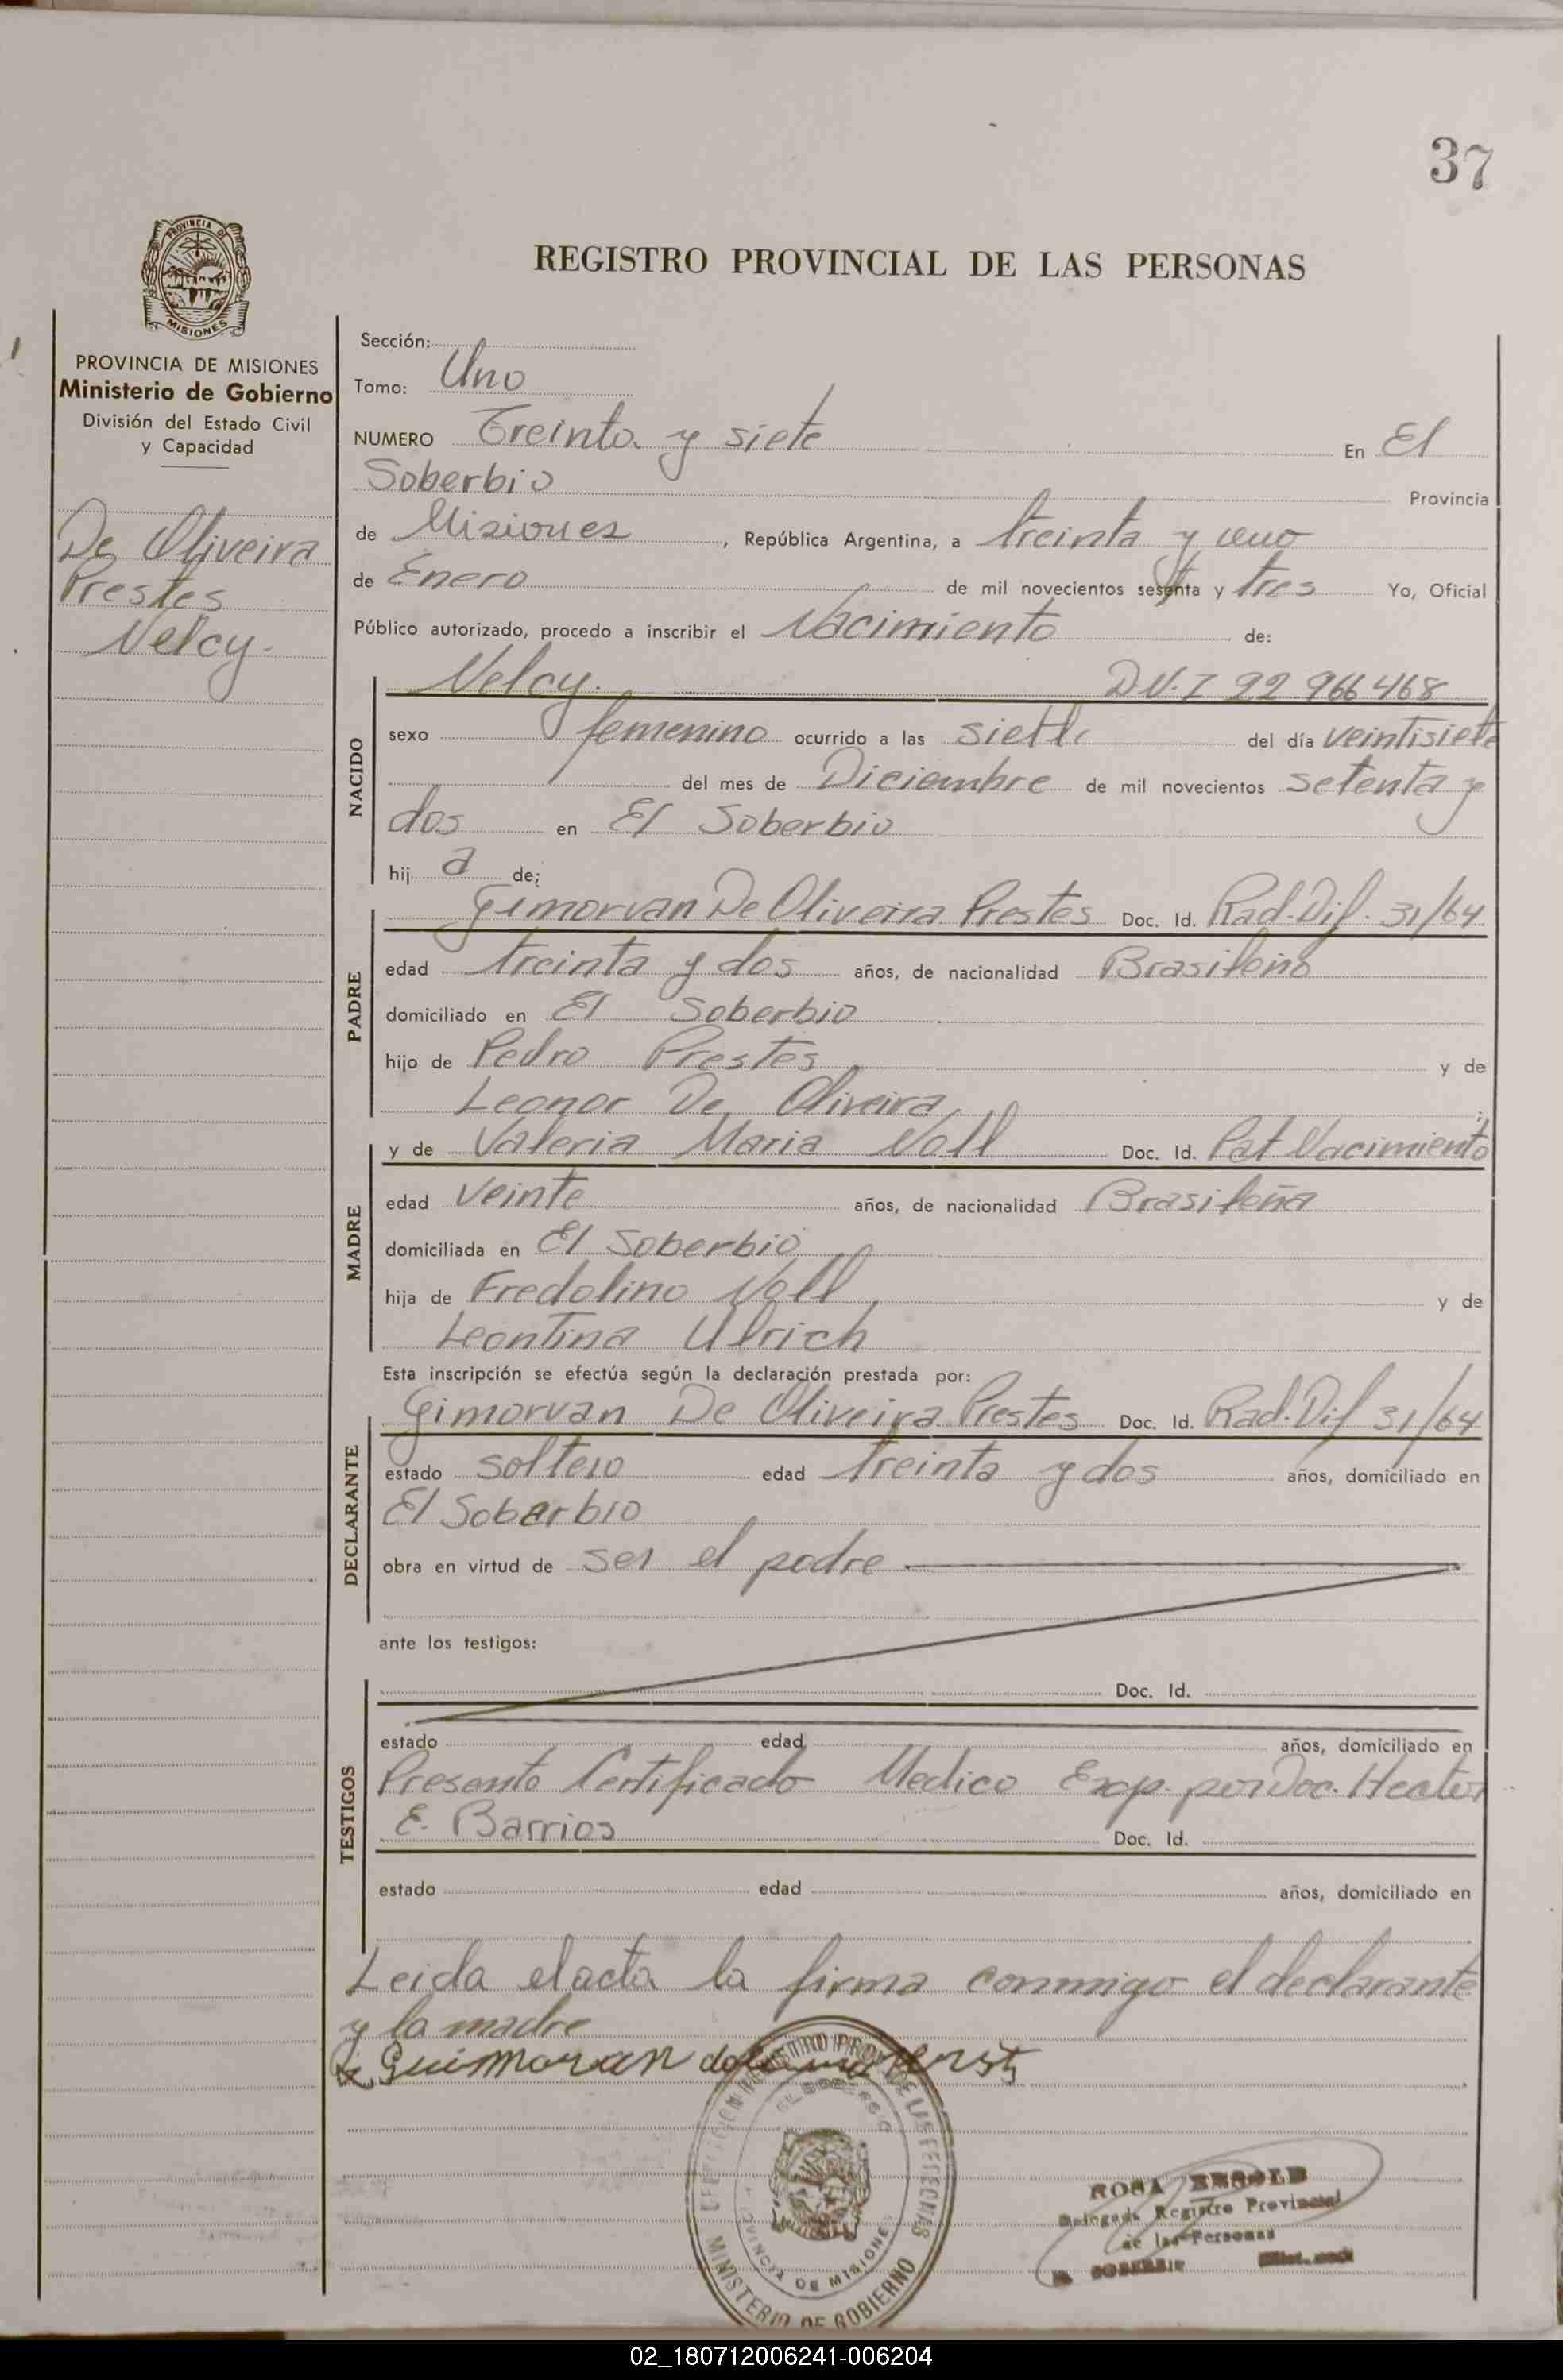 37
PROVINCIA DE
MISIONES
REGISTRO PROVINCIAL DE LAS PERSONAS
PROVINCIA DE MISIONES
Ministerio de Gobierno
División del Estado Civil
y Capacidad
De Oliveira
Prestes
Nelcy.
Sección:
Tomo: Uno
NUMERO Treinta y siete En El
Soberbio Provincia
de Misiones, República Argentina, a treinta y uno
de Enero de mil novecientos sesenta y tres Yo, Oficial
Público autorizado, procedo a inscribir el Nacimiento de:
NACIDO
Nelcy. D.N.I 22 966 468
sexo femenino ocurrido a las siete del día veintisiete
del mes de Diciembre de mil novecientos setenta y
dos en El Soberbio
hij a de;
PADRE
Gimorvan De Oliveira Prestes Doc. Id. Rad. Dif. 31/64
edad treinta y dos años, de nacionalidad Brasileño
domiciliado en El Soberbio
hijo de Pedro Prestes y de
Leonor De Oliveira ;
MADRE
y de Valeria Maria Noll Doc. Id. Pat Nacimiento
edad veinte años, de nacionalidad Brasileña
domiciliada en El Soberbio
hija de Fredolino Noll, y de
Leontina Ulrich
Esta inscripción se efectúa según la declaración prestada por:
DECLARANTE
Gimorvan De Oliveira Prestes Doc. Id. Rad. Dif 31/64
estado soltero edad treinta y dos años, domiciliado en
El Soberbio
obra en virtud de ser el padre
ante los testigos:
TESTIGOS
Doc. Id.
estado edad años, domiciliado en
Presento Certificado Medico Exp. por Doc. Hector
E. Barrios Doc. Id.
estado edad años, domiciliado en
Leida el acta la firma conmigo el declarante
y la madre
Guimoran
PROVINCIA DE MISIONES
MINISTERIO DE GOBIERNO
ROSA
Delegada Registro Provincial
de las Personas
EL SOBERBIO
02_180712006241-006204